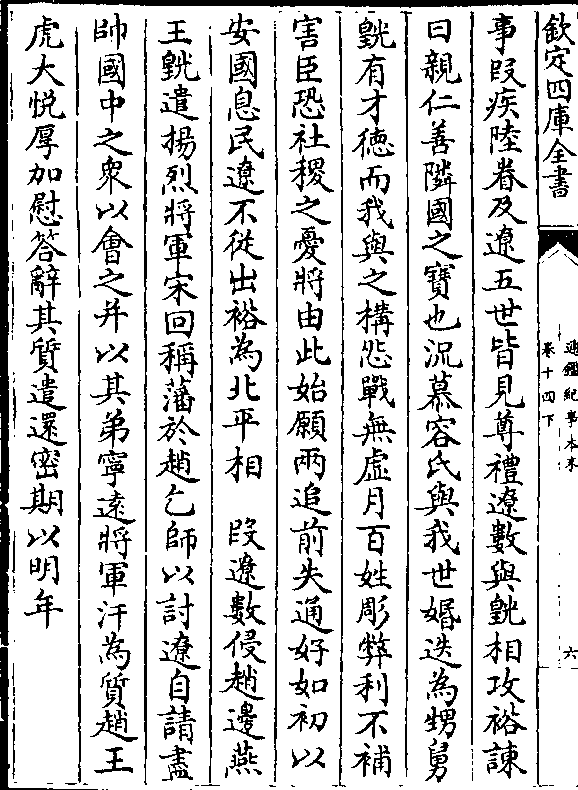 欽定四庫全書
通鑑紀事本末
卷十四下
六
事段疾陸眷及遼五世皆見尊禮遼數與皝相攻裕諫
曰親仁善隣國之寶也況慕容氏與我世婚迭為甥舅
皝有才徳而我與之構怨戰無虚月百姓彫弊利不補
害臣恐社稷之憂將由此始願兩追前失通好如初以
安國息民遼不從出裕為北平相　段遼數侵趙邊燕
王皝遣揚烈將軍宋回稱藩於趙乞師以討遼自請盡
帥國中之衆以會之并以其弟寧遠將軍汗為質趙王
虎大悦厚加慰答辭其質遣還密期以明年